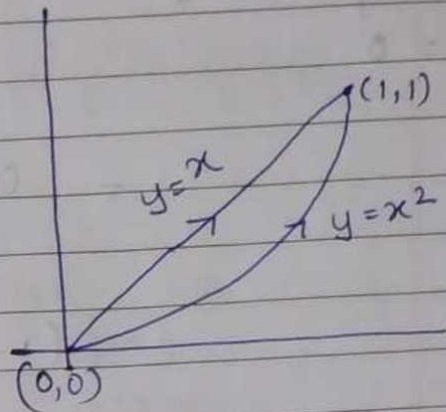 (1,1)
y=x
y=x²
(0,0)